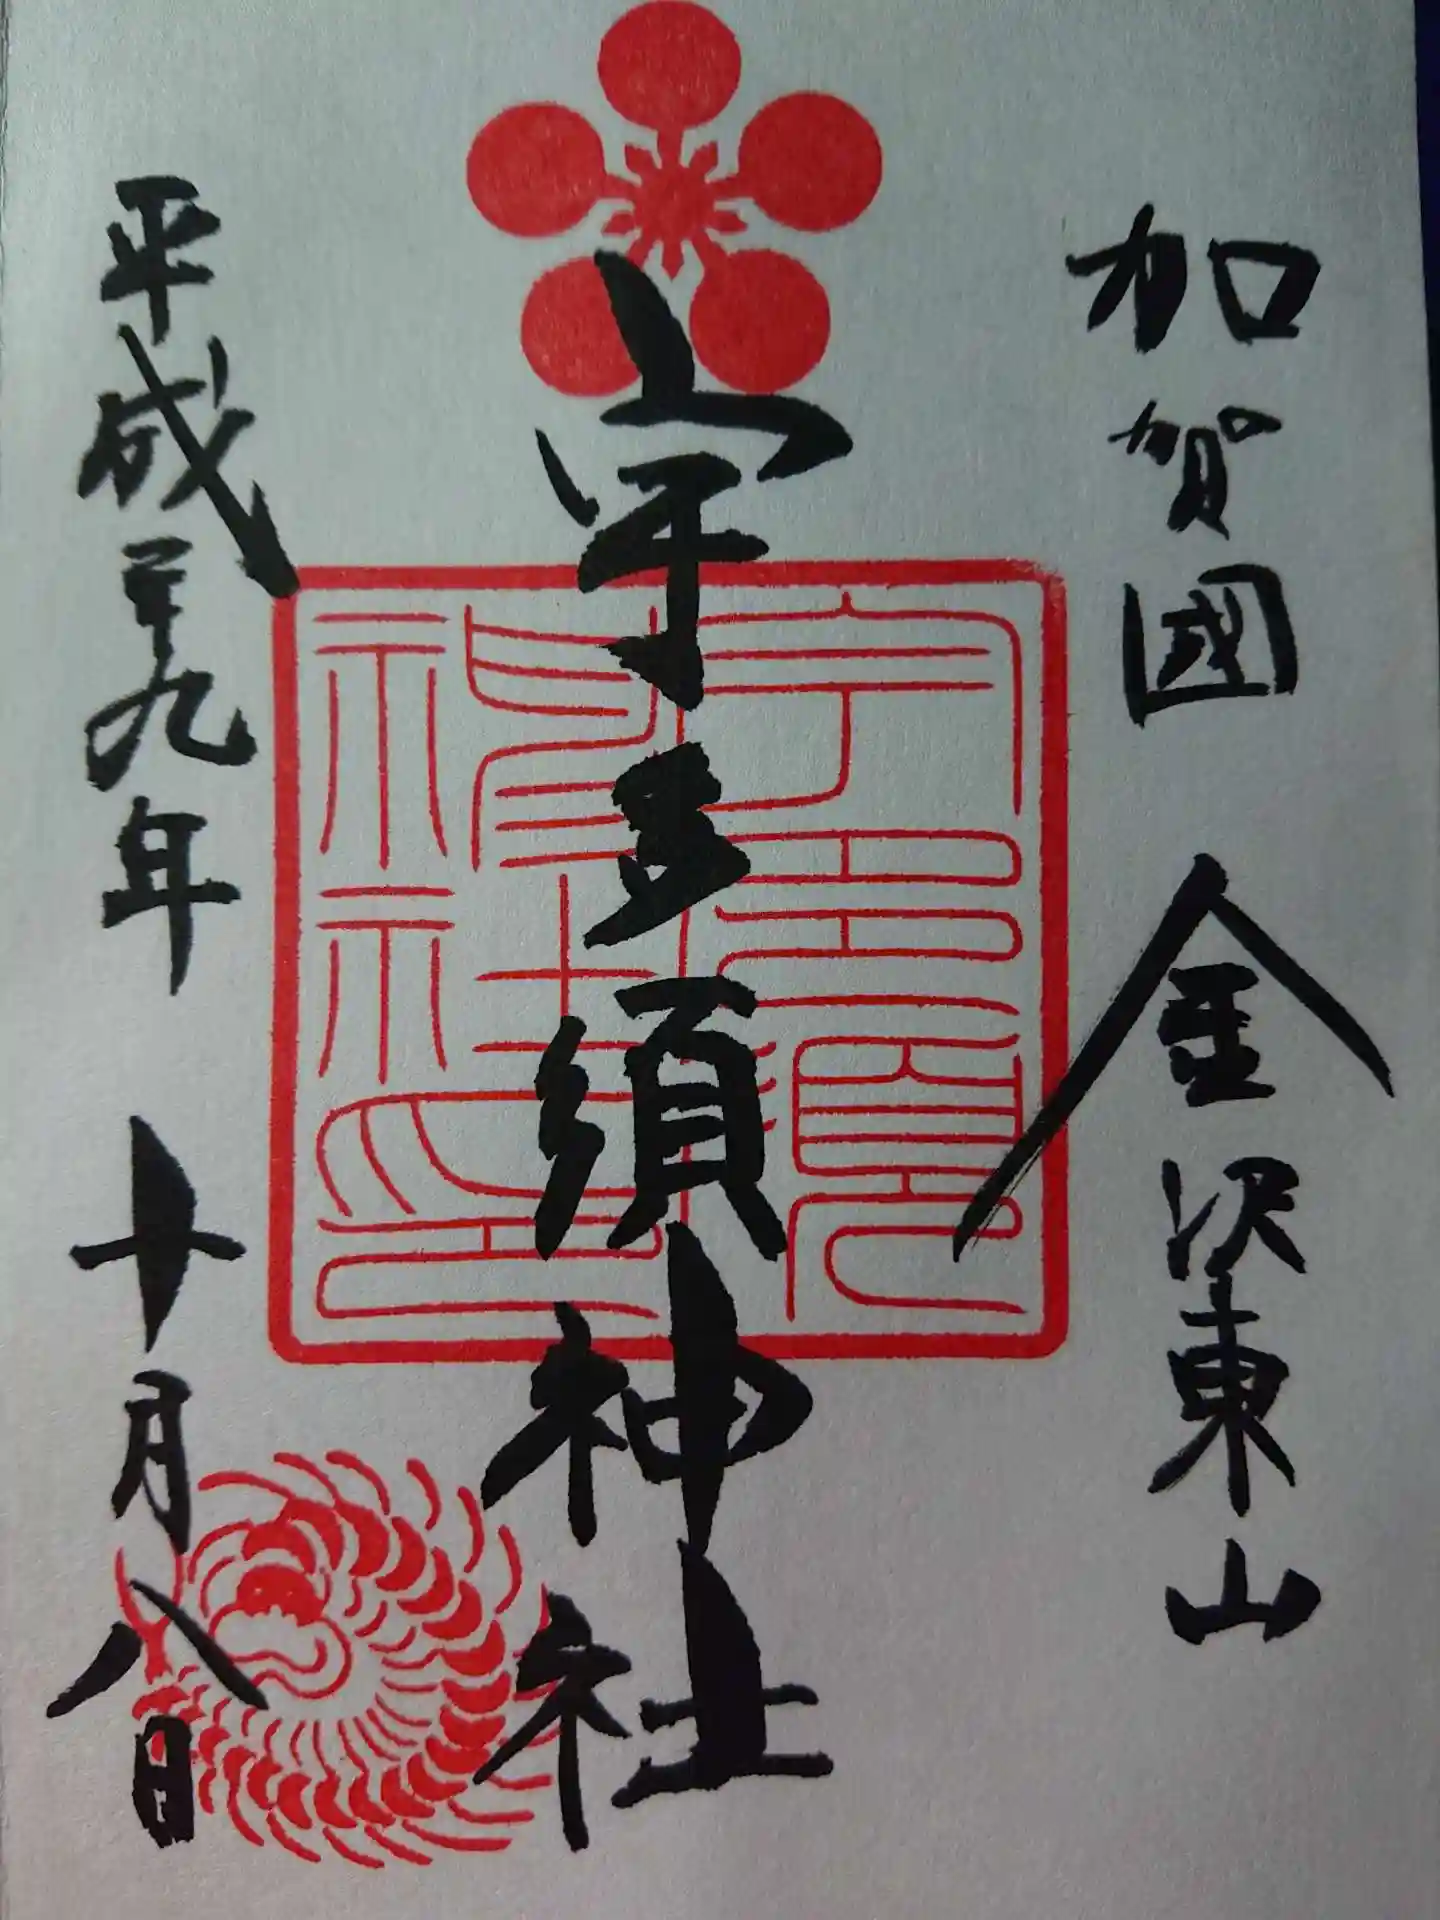 加賀國 金沢東山
宇多須神社
宇多須神社印
平成二十九年 十月八日